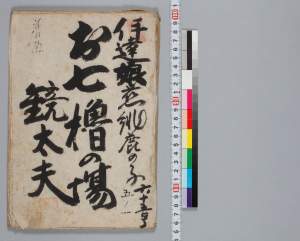 伊達娘恋緋鹿の子
六十五号
お七櫓の場
鏡太夫